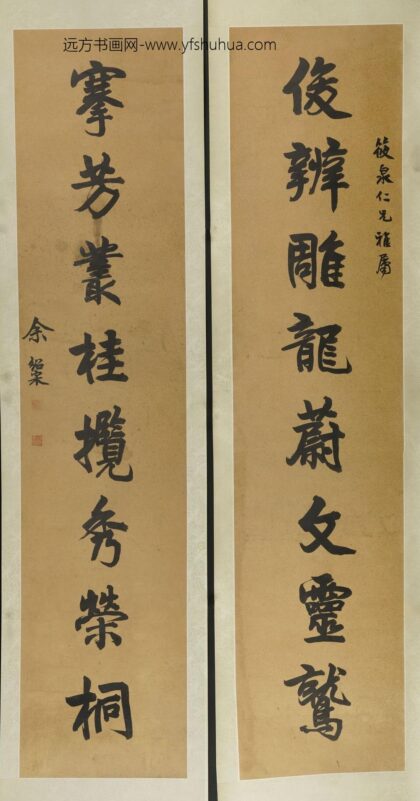 远方书画网-www.yfshuhua.com
筱泉仁兄雅屬
俊辨雕龍蔚文靈鷲
搴芳叢桂攬秀榮桐
余